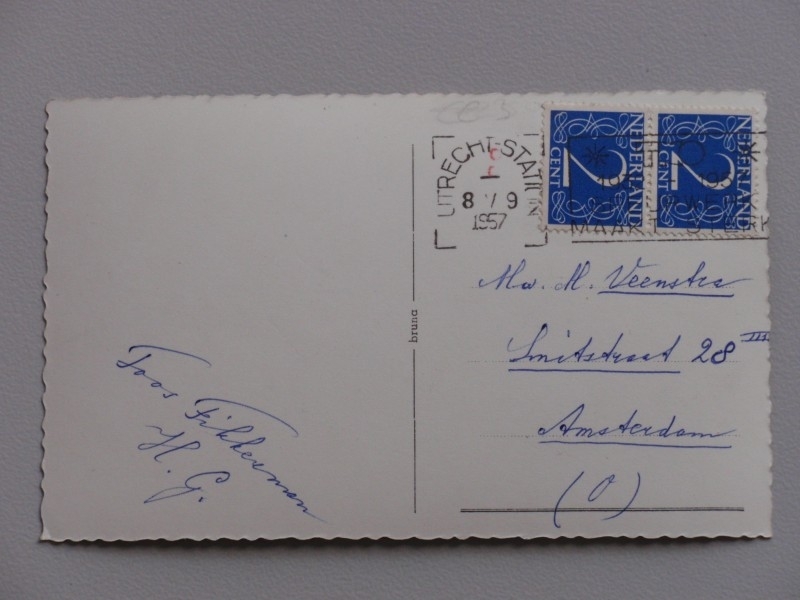 UTRECHT-STATION
8 V 9
1957
NEDERLAND
2
CENT
NEDERLAND
2
CENT
MAAKT STERK
bruna
Mw. M. Veenstra
Smitstraat 28 III
Amsterdam
(O)
Toos Fikkerman
H. G.